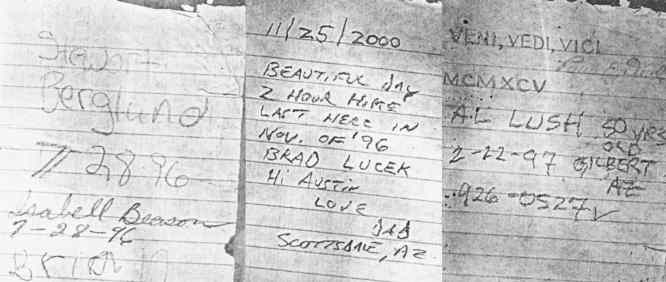 Berglund
7 28 96
Isabell Beason
7-28-96
Brian
11/25/2000
BEAUTIFUL DAY
2 HOUR HIKE
LAST HERE IN
NOV. OF '96
BRAD LUCEK
Hi AUSTIN
LOVE
DAD
SCOTTSDALE, AZ
VENI, VEDI, VICI
MCMXCV
AL LUSH 50 YRS
OLD
2-22-97 GILBERT
AZ
926-0527